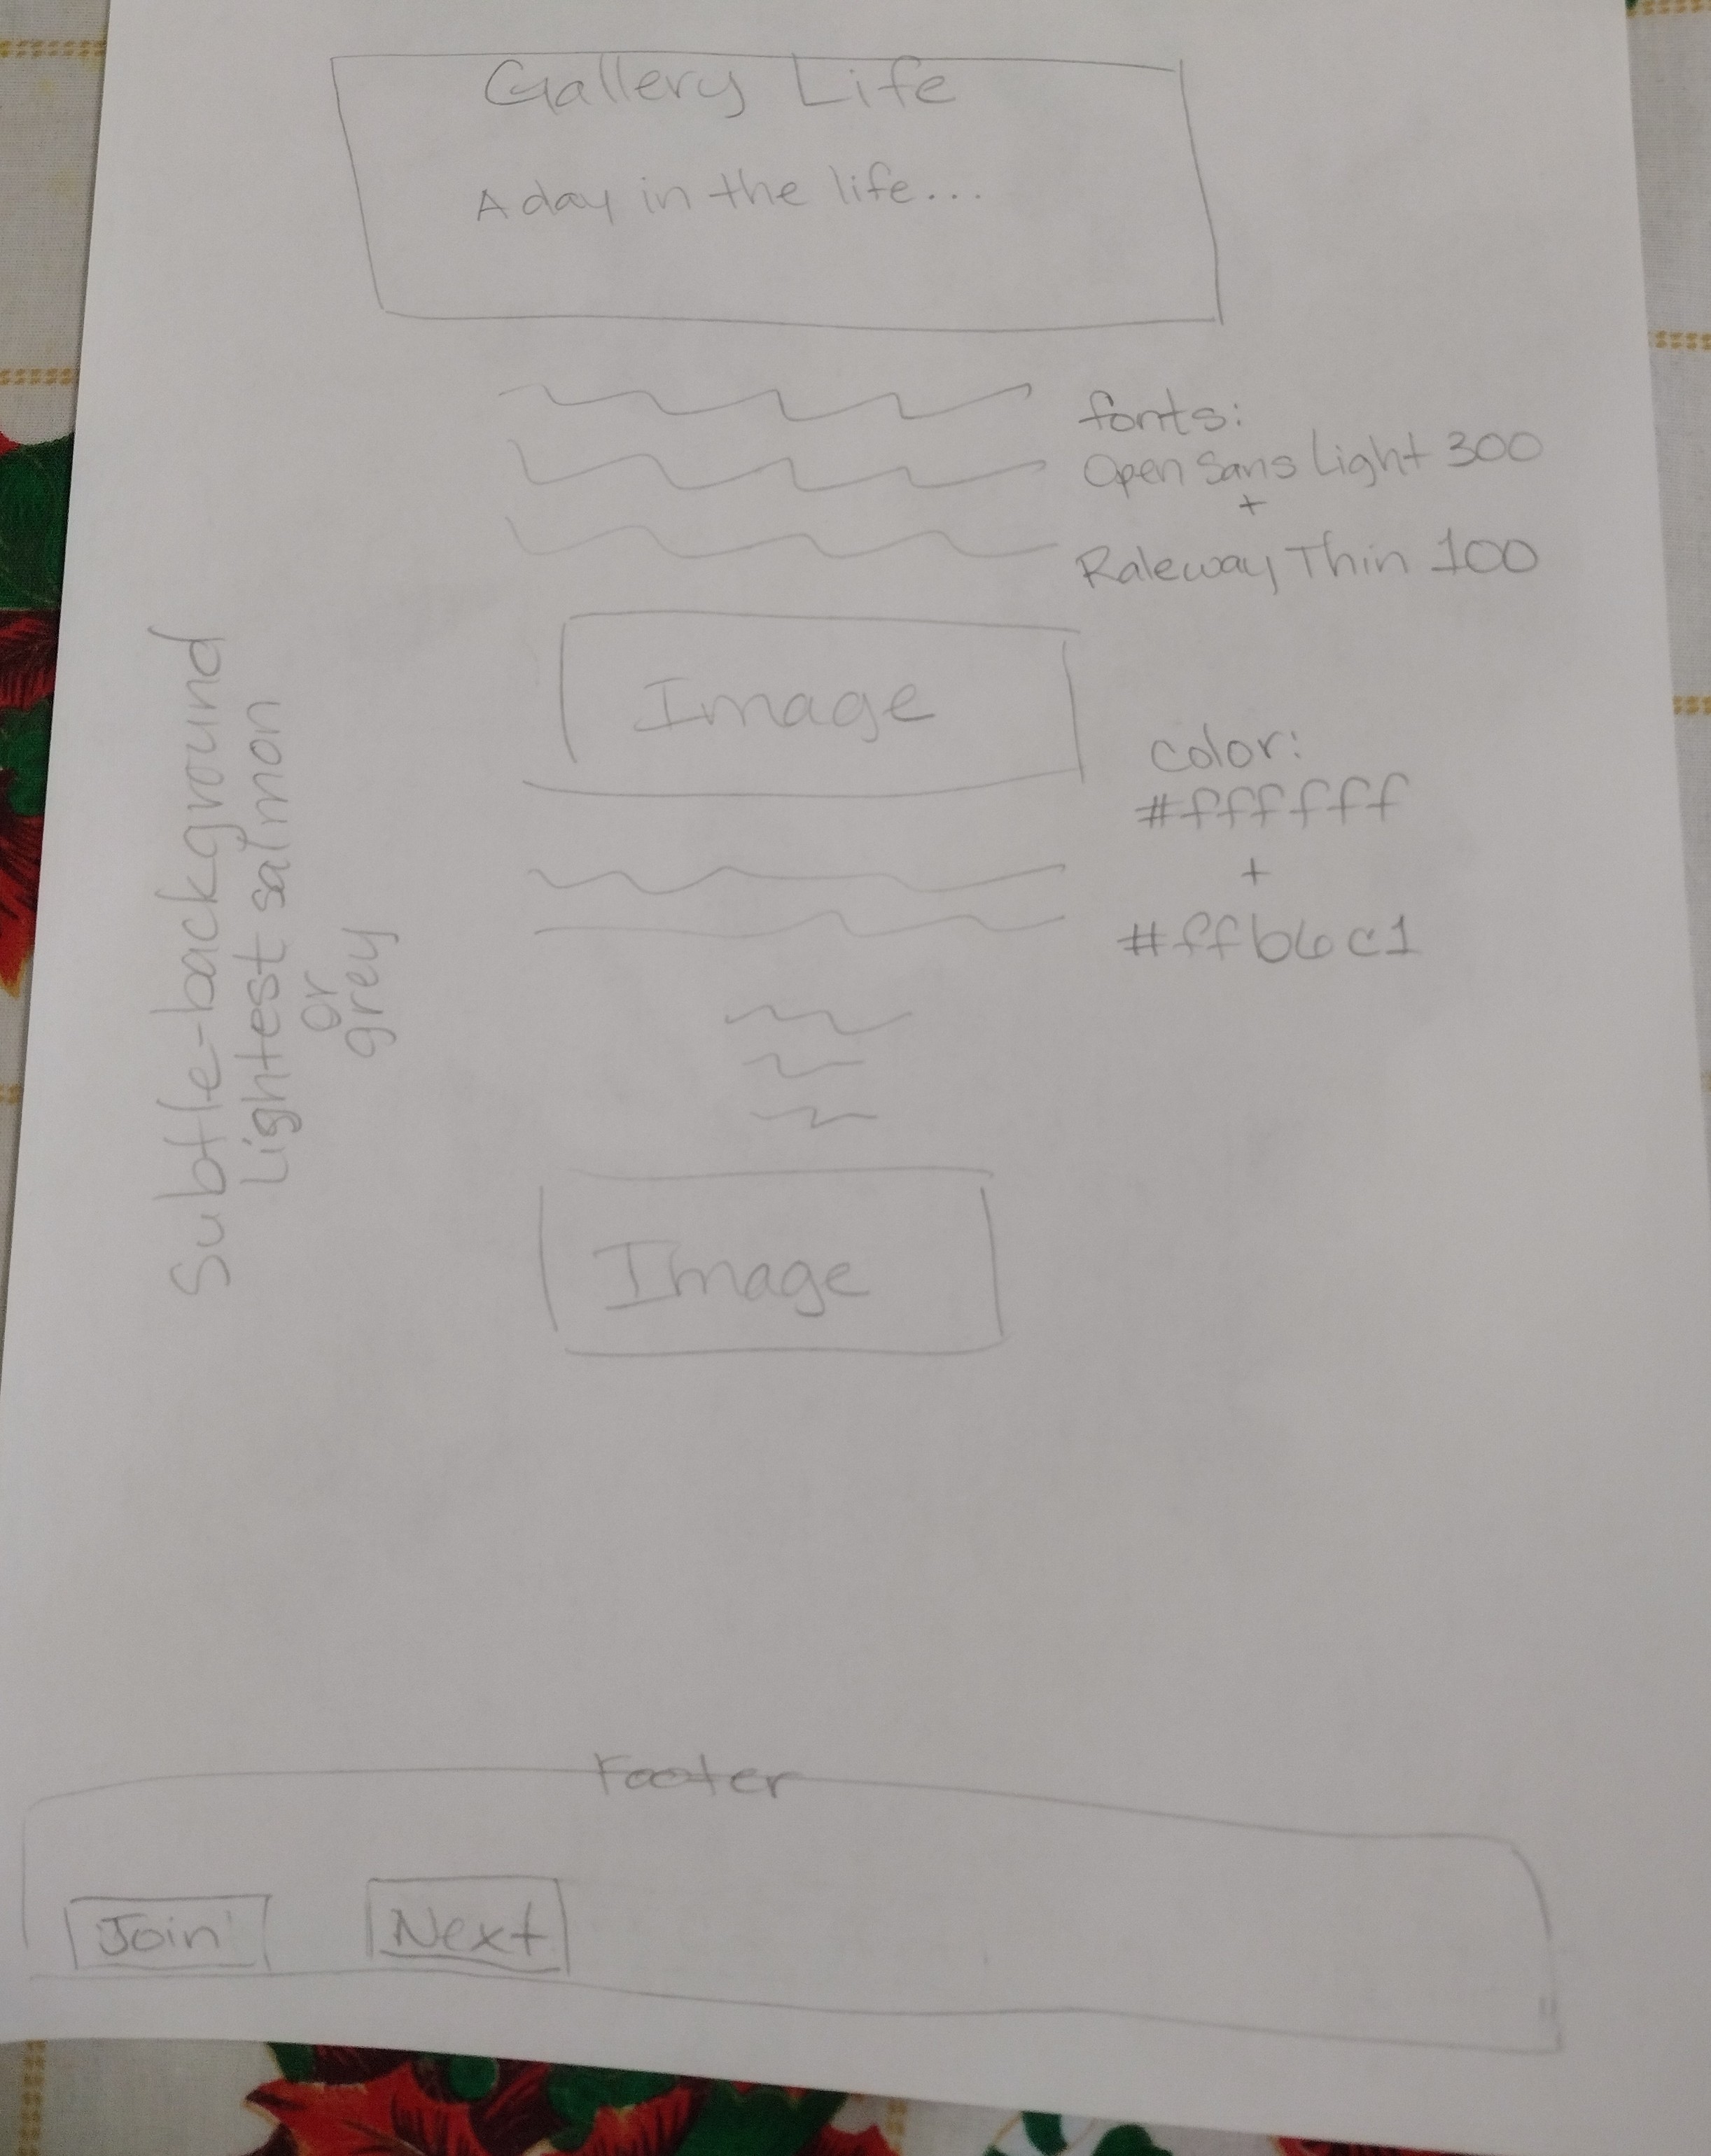 Gallery Life
A day in the life...
fonts:
Open Sans Light 300
+
Raleway Thin 100
Image
color:
#ffffff
+
#ffb6c1
Subtle-background
Lightest salmon
or
grey
Image
Footer
Join
Next